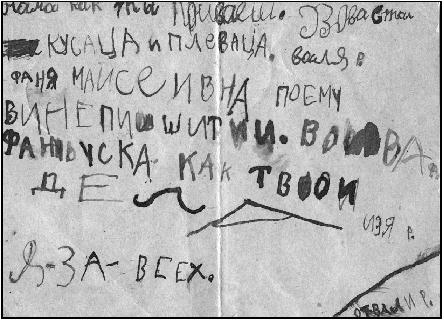 мама как ты
Вова стал
кусаца и плеваца. валя р.
фаня маисеивна поему
вине пишшити. вовва р.
фанючска как твои
де
изя р.
Я-за-всех.
отвали р.